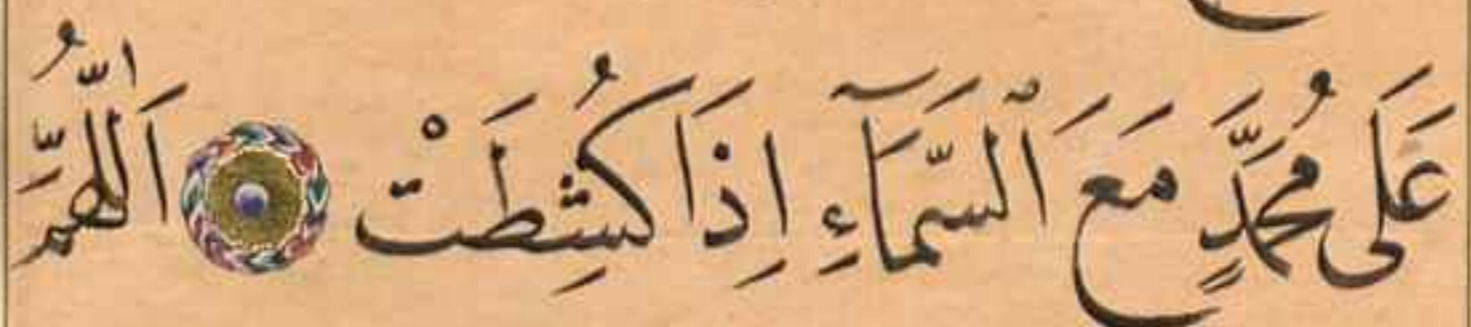 عَلَى مُحَمَّدٍ مَعَ ٱلسَّمَآءِ اِذَا كُشِطَتْ اَللّٰهُمَّ